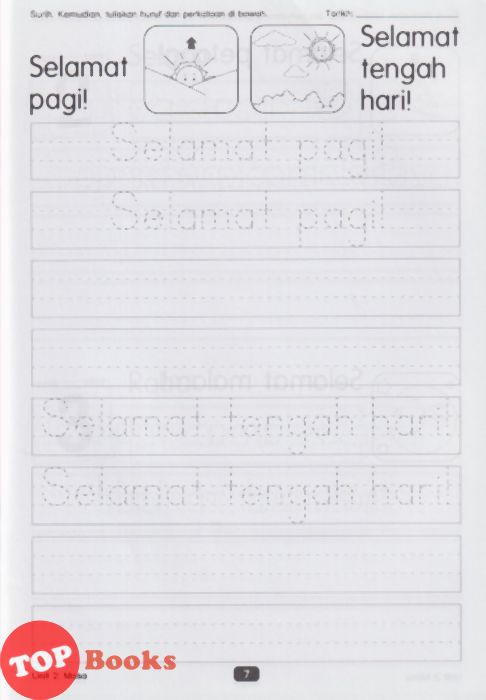 Surih. Kemudian, tuliskan huruf dan perkataan di bawah.
Tarikh:
Selamat
pagi!
Selamat
tengah
hari!
Selamat pagi!
Selamat pagi!
Selamat tengah hari!
Selamat tengah hari!
TOP Books
Unit 2: Masa
7